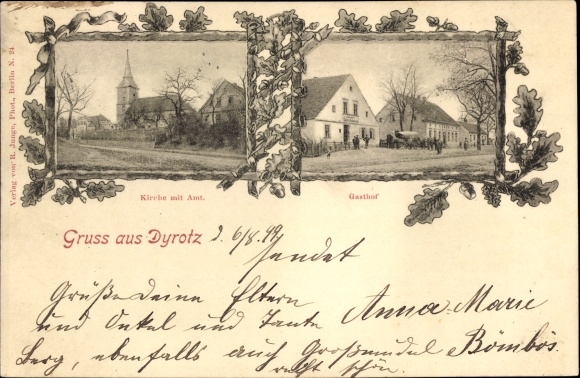 Verlag von R. Junge, Phot., Berlin N. 24
Kirche mit Amt.
Gasthof
Gruss aus Dyrotz
d. 6/8.99
sendet
Grüße Deine Eltern Anna-Marie
und Onkel und Tante
berg, ebenfalls auch Großmudel Bömbös
recht schön.